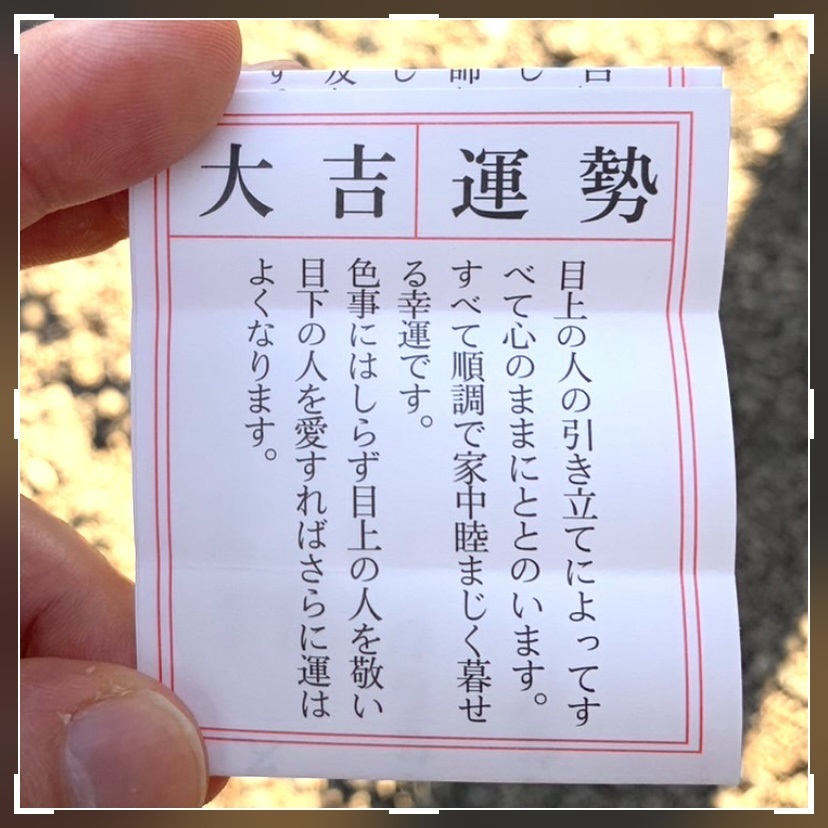 大吉 運勢
目上の人の引き立てによってす
べて心のままにととのいます。
すべて順調で家中睦まじく暮せ
る幸運です。
色事にはしらず目上の人を敬い
目下の人を愛すればさらに運は
よくなります。